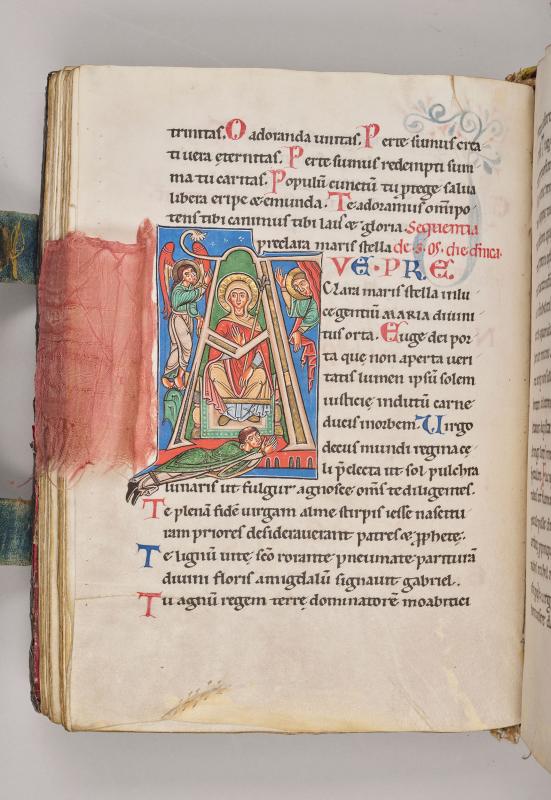 trinitas. O adoranda unitas. P erte sumus crea
ti vera ęternitas. P erte sumus redempti sum
ma tu caritas. Populū cunctū tu ꝓtege. salva
libera eripe ⁊ęmunda. Te adoramus om̄ipo
tens tibi canimus tibi laus ⁊ gloria. Sequentia
preclara maris stella de s.
VE · PRE
CLara maris stella inlu
ce gentiū MARIA divini
tus orta. Euge dei por
ta que non aperta veri
tatis lumen ipsū solem
iusticię indutū carne
ducis in orbem. Virgo
decus mundi regina cę
li p̄electa ut sol pulchra
lunaris ut fulgur agnosce om̄s te diligentes.
Te plenā fide virgam alme stirpis iesse nascitu
ram priores desideraverant patres ⁊ ꝓphetę.
Te lignū vitę sc̄o rorante pneumate parituram
divini floris amigdalū signavit gabriel.
Tu agnū regem terrę dominatorē moabitici